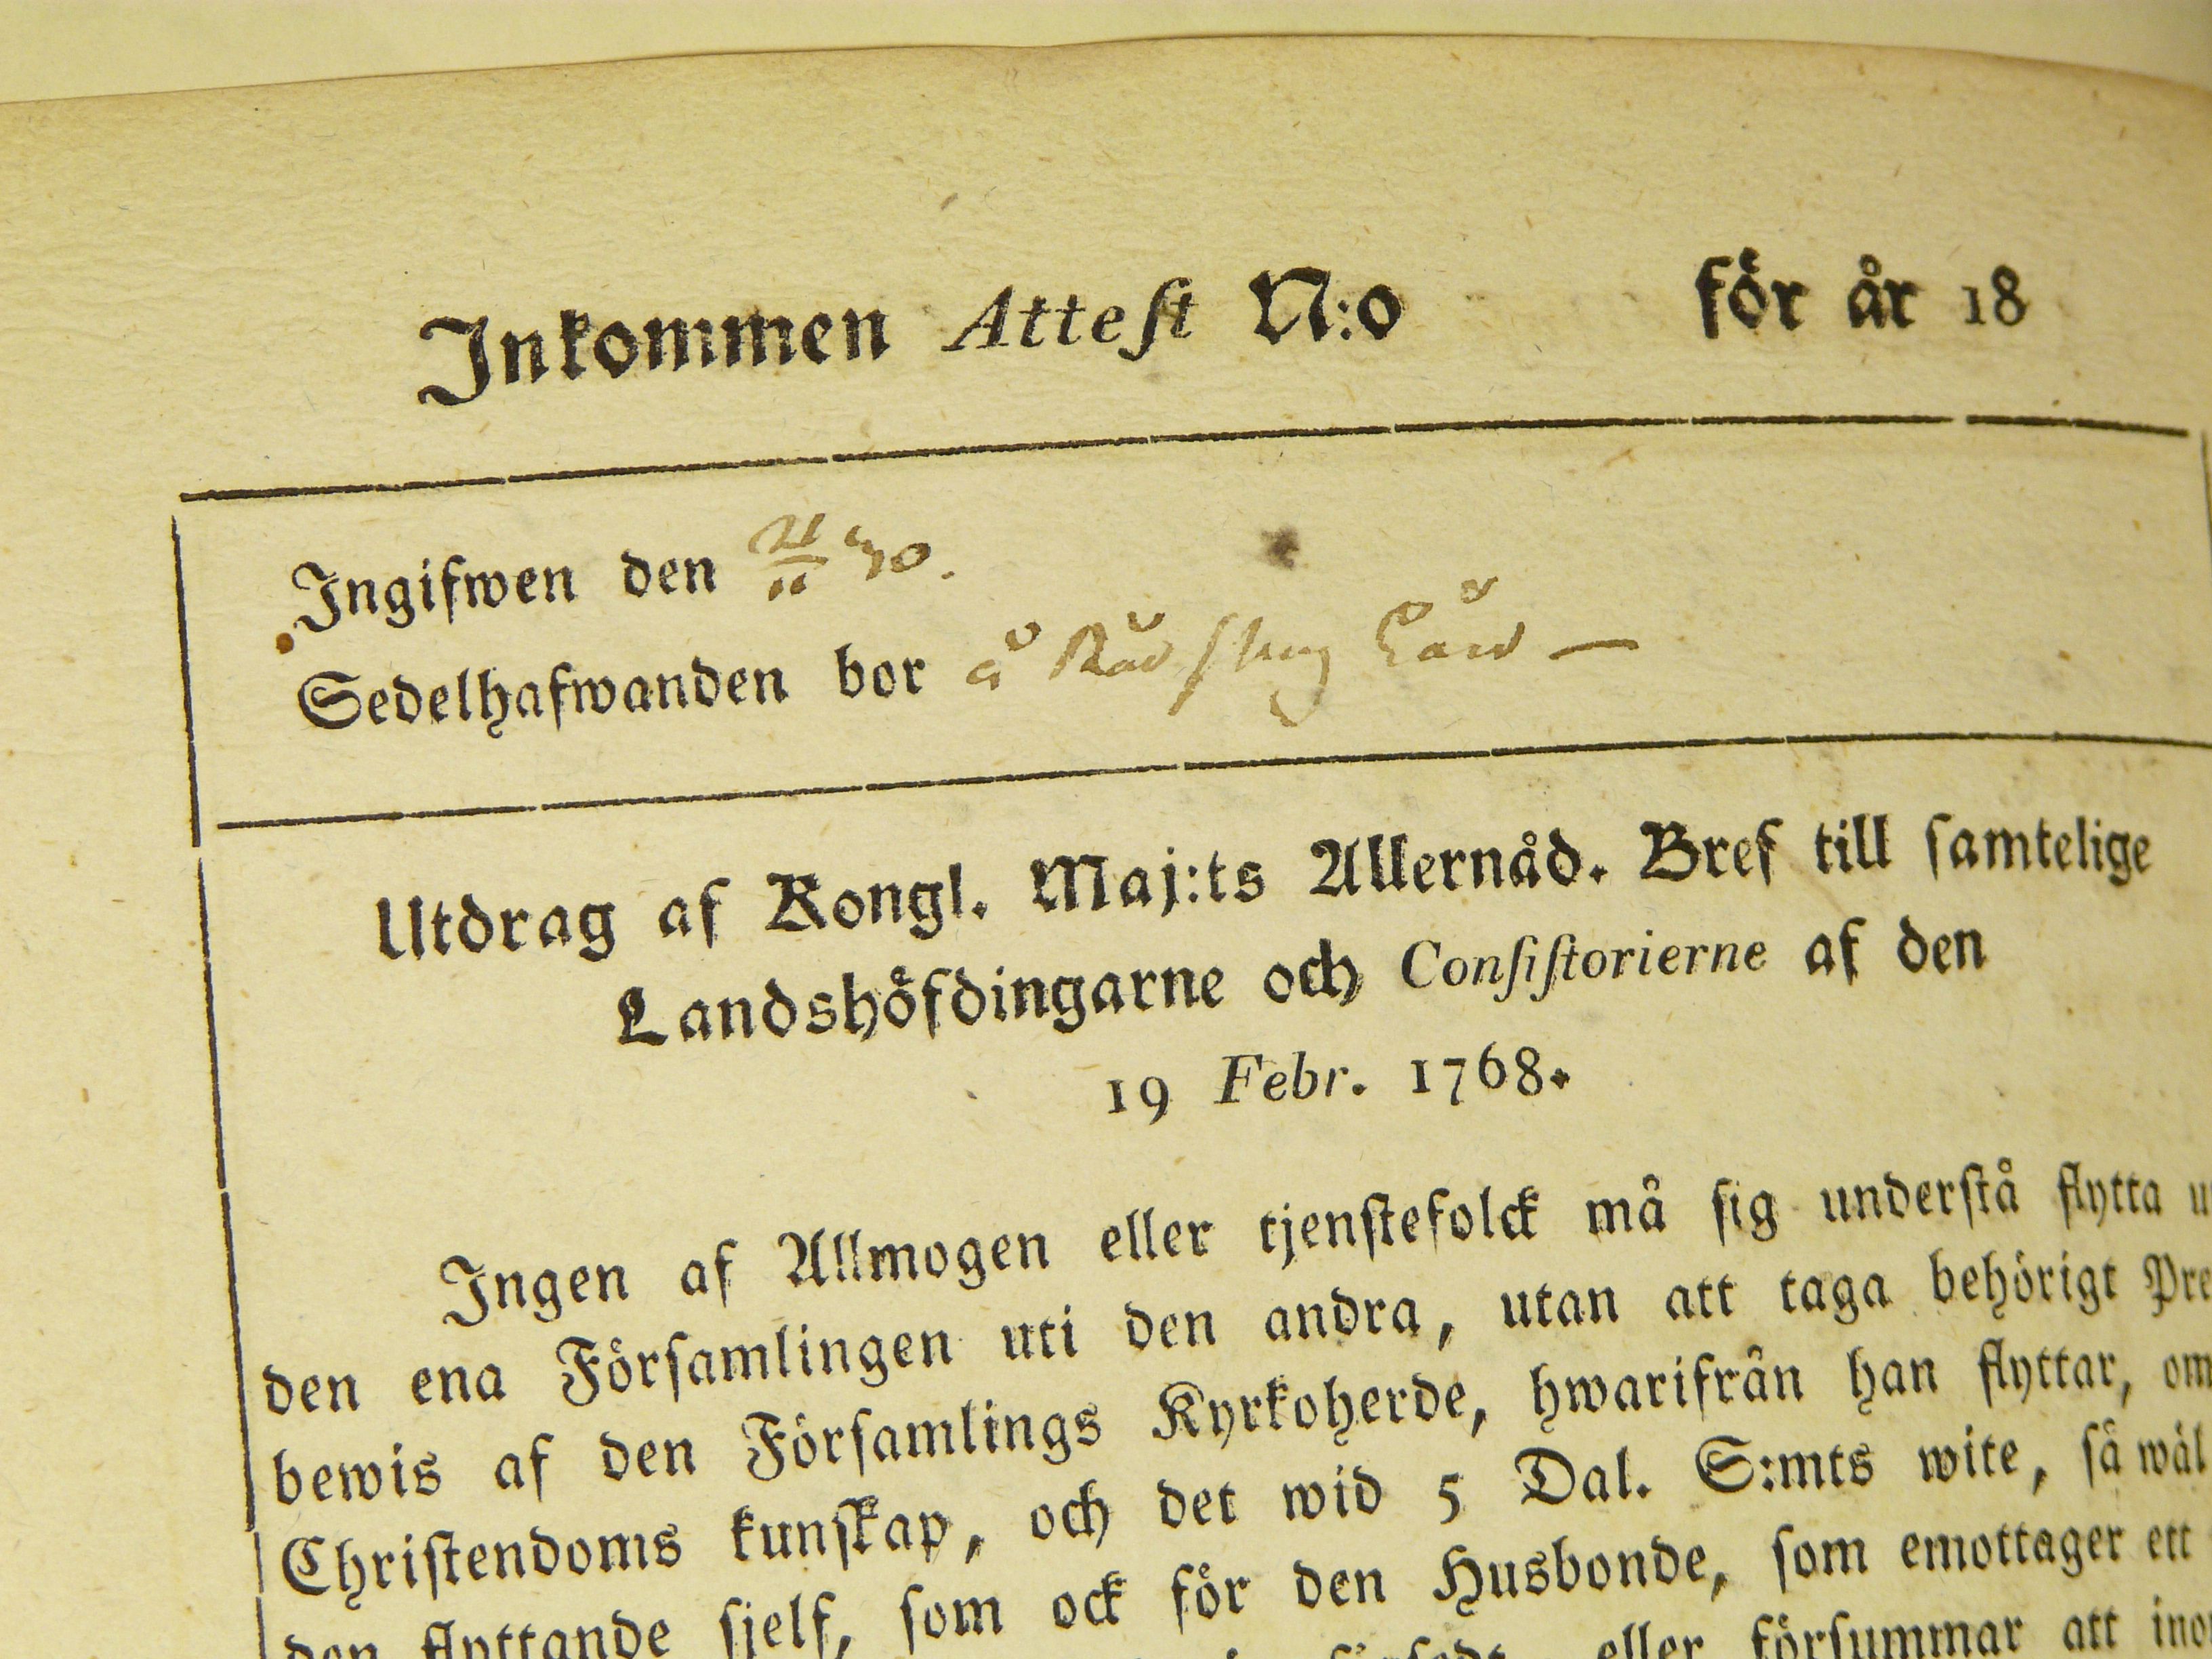 Inkommen Atteſt N:o för år 18
Ingifwen den 21/11 30.
Sedelhafwanden bor å
Utdrag af Kongl. Maj:ts Allernåd. Bref till ſamtelige
Landshöfdingarne och Conſiſtorierne af den
19 Febr. 1768.
Ingen af Allmogen eller tjenſtefolck må ſig underſtå flytta
den ena Förſamlingen uti den andra, utan att taga behörigt Pre
bewis af den Förſamlings Kyrkoherde, hwarifrån han flyttar, om
Chriſtendoms kunſkap, och det wid 5 Dal. S:mts wite, ſå wäl
den flyttande ſjelf, ſom ock för den Husbonde, ſom emottager ett
eller förſummar att ino